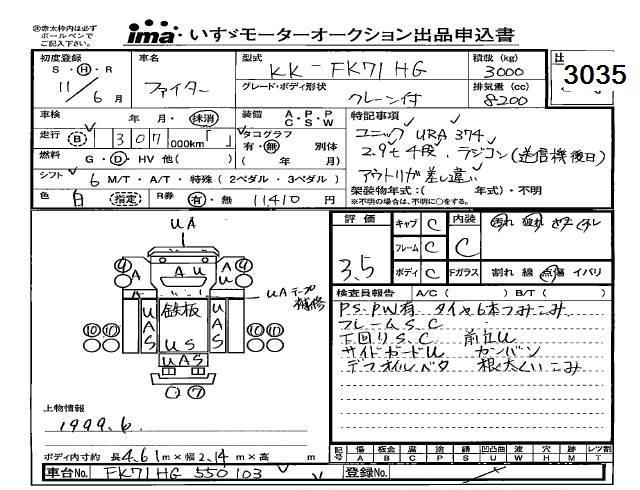 ㊟赤太枠内は必ず
ボールペンで
ご記入下さい。
ima いすゞモーターオークション出品申込書
初度登録 車名 型式 積載 (kg)
S・H・R ファイター KK-FK71HG 3000 3035
11年 6月 グレード・ボディ形状 クレーン付 排気量 (cc) 8200
車検 年 月・抹消 装備 A・P・P C・S・W 特記事項
走行 B 307,000km タコグラフ 有・無 別体 ユニック URA374
燃料 G・D・HV 他( ) ( 年 月) 2.9t 4段、ラジコン(送信機後日)
シフト 6 M/T・A/T・特殊 (2ペダル・3ペダル) アウトリガ差し違い
架装物年式:( 年式)・不明
色 白 (指定) R券 有・無 11,410 円 ※不明の場合は、不明に○をする。
評価 3.5
キャブ C 内装 C 汚れ 破れ
フレーム C
ボディ C Fガラス 割れ 線 点傷 イバリ
検査員報告 A/C ( ) B/T ( )
PS.PW有 タイヤ6本つみこみ
フレームS.C
下回りS.C
サイドガードU
デフオイルベタ
UA
④ A U U ④
UAテープ補修
UAS 鉄板 UAS
⑩⑩ ⑩⑩
US
UAS
⑦
上物情報
1999.6.
ボディ内寸約 長4.61m×幅2.14m×高 m
記号 傷 A 板金 B 腐 C 塗 P 錆 S 凹凸曲 U 波 W 穴 H 跡 M レツ割 T
車台No. FK71HG 550103 登録No.